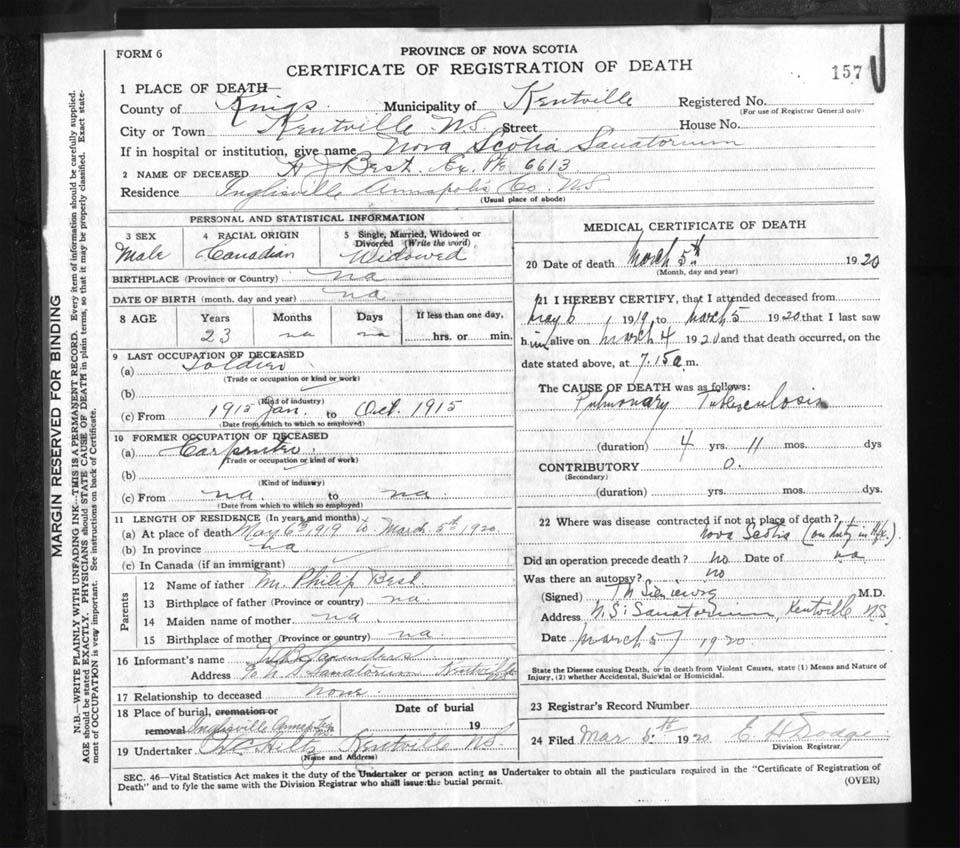 FORM 6
PROVINCE OF NOVA SCOTIA
CERTIFICATE OF REGISTRATION OF DEATH
157
MARGIN RESERVED FOR BINDING
N.B.—WRITE PLAINLY WITH UNFADING INK—THIS IS A PERMANENT RECORD. Every item of information should be carefully supplied.
AGE should be stated EXACTLY. PHYSICIANS should STATE CAUSE OF DEATH in plain terms, so that it may be properly classified. Exact state-
ment of OCCUPATION is very important. See instructions on back of Certificate.
1 PLACE OF DEATH
County of Kings Municipality of Kentville Registered No.
(For use of Registrar General only)
City or Town Kentville N.S. Street House No.
If in hospital or institution, give name Nova Scotia Sanatorium
2 NAME OF DECEASED A J Best. Ex. Pte 6613
Residence Inglisville Annapolis Co. N.S.
(Usual place of abode)
PERSONAL AND STATISTICAL INFORMATION
3 SEX Male
4 RACIAL ORIGIN Canadian
5 Single, Married, Widowed or Divorced (Write the word) Widowed
BIRTHPLACE (Province or Country) na
DATE OF BIRTH (month, day and year) na
8 AGE Years 23 Months na Days na If less than one day, hrs. or min.
9 LAST OCCUPATION OF DECEASED
(a) Soldier
(Trade or occupation or kind or work)
(b)
(Kind of industry)
(c) From 1915 Jan. to Oct. 1915
(Date from which to which so employed)
10 FORMER OCCUPATION OF DECEASED
(a) Carpenter
(Trade or occupation or kind of work)
(b)
(Kind of industry)
(c) From na. to na.
(Date from which to which so employed)
11 LENGTH OF RESIDENCE (In years and months)
(a) At place of death May 6th 1919 to March 5th 1920.
(b) In province na
(c) In Canada (if an immigrant)
Parents
12 Name of father Mr. Philip Best
13 Birthplace of father (Province or country) na.
14 Maiden name of mother na.
15 Birthplace of mother (Province or country) na.
16 Informant's name Saunders
Address c/o N.S. Sanatorium Kentville
17 Relationship to deceased none.
18 Place of burial, cremation or removal Inglisville Annap.
Date of burial 19
19 Undertaker Kentville N.S.
(Name and Address)
MEDICAL CERTIFICATE OF DEATH
20 Date of death March 5th 1920
(Month, day and year)
21 I HEREBY CERTIFY, that I attended deceased from
May 6 1919 to March 5 1920 that I last saw
him alive on March 4 1920 and that death occurred, on the
date stated above, at 7.15 a.m.
The CAUSE OF DEATH was as follows:
Pulmonary Tuberculosis
(duration) 4 yrs. 11 mos. dys
CONTRIBUTORY 0.
(Secondary)
(duration) yrs. mos. dys.
22 Where was disease contracted if not at place of death?
Nova Scotia (on duty in Hfx.)
Did an operation precede death? no Date of na
Was there an autopsy? no
(Signed) M.D.
Address N.S. Sanatorium, Kentville N.S.
Date March 5 1920.
State the Disease causing Death, or in death from Violent Causes, state (1) Means and Nature of
Injury, (2) whether Accidental, Suicidal or Homicidal.
23 Registrar's Record Number
24 Filed Mar 5th 1920 E. H Dodge
Division Registrar
SEC. 46—Vital Statistics Act makes it the duty of the Undertaker or person acting as Undertaker to obtain all the particulars required in the "Certificate of Registration of
Death" and to fyle the same with the Division Registrar who shall issue the burial permit.
(OVER)